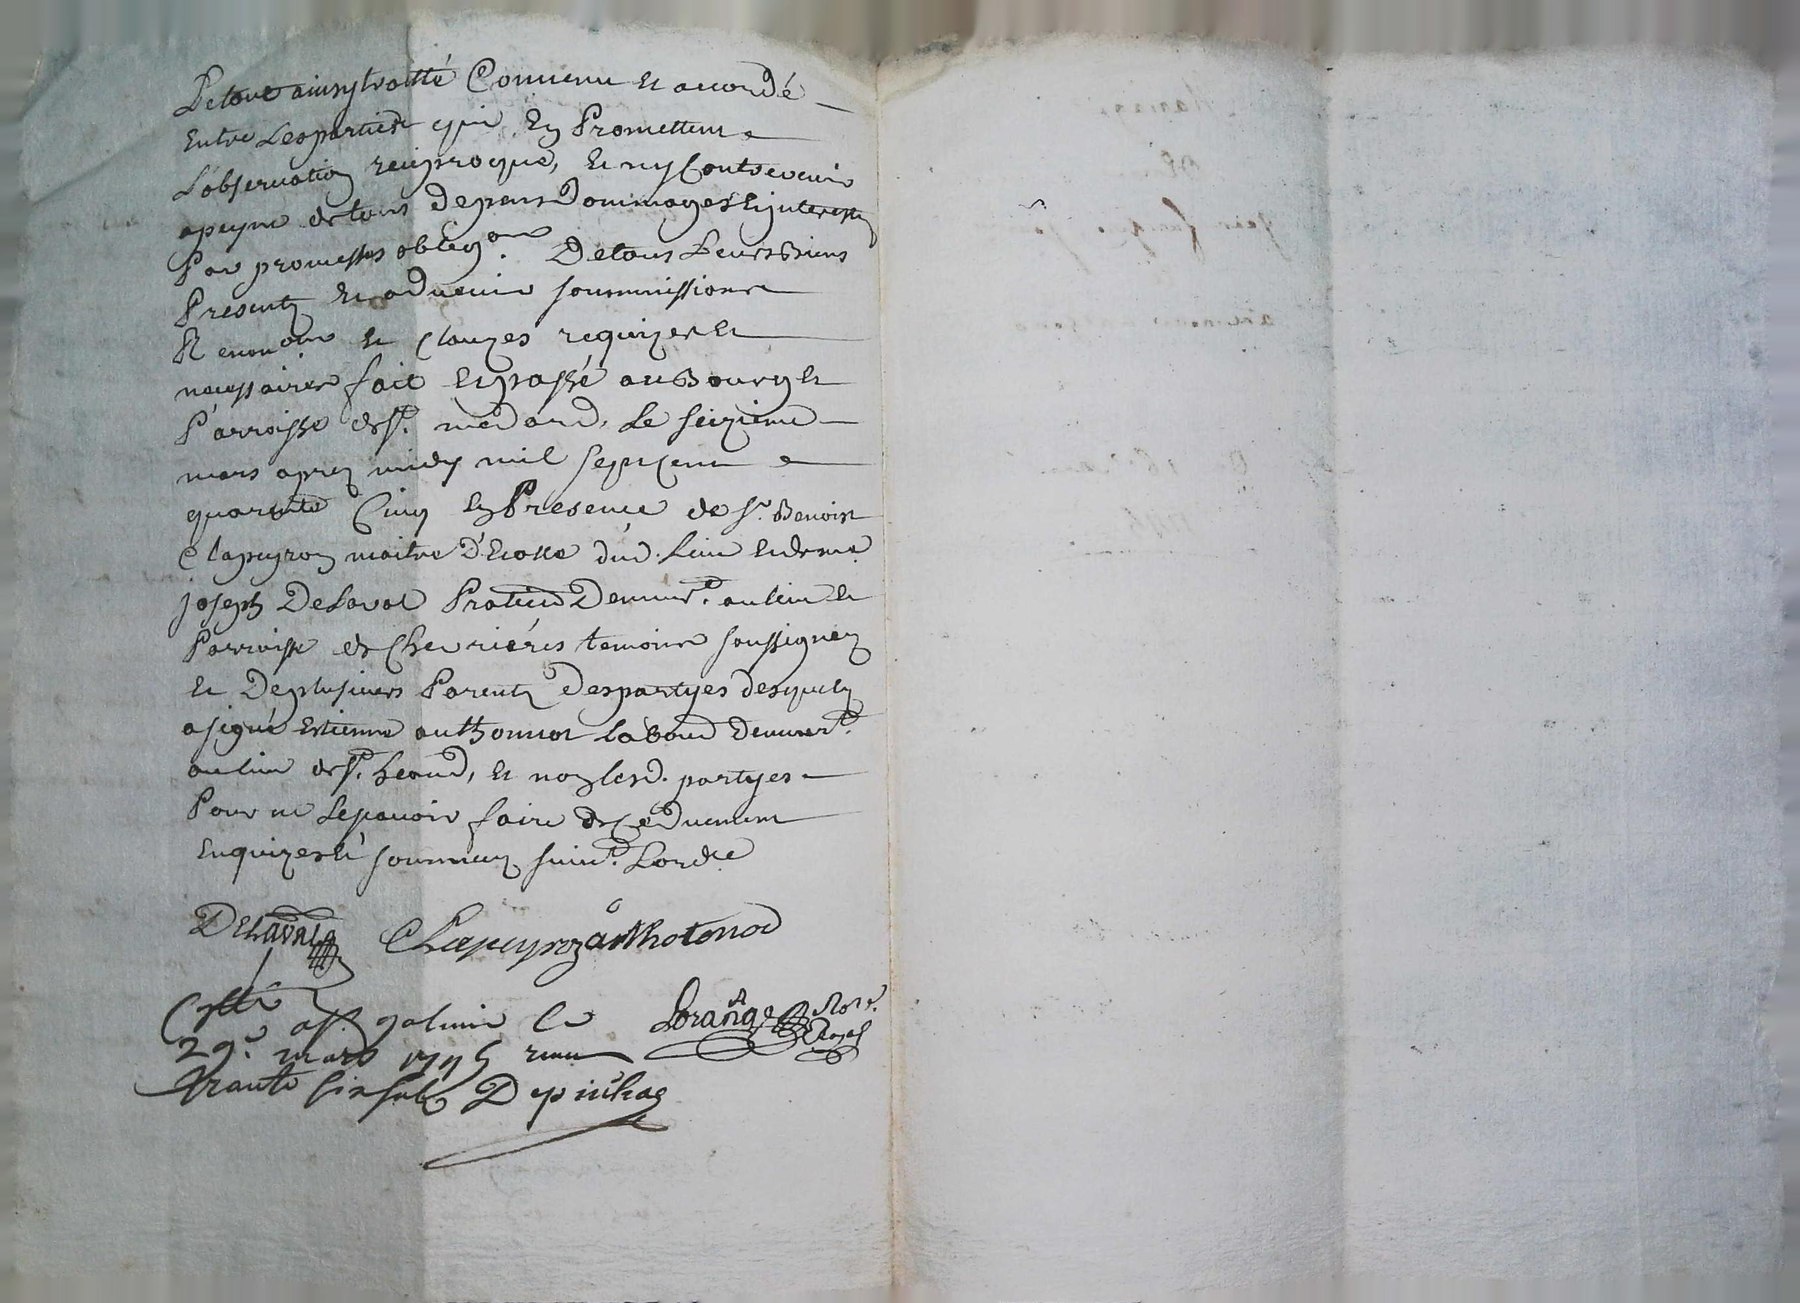 Letout ainsy traitté Convenu et accordé
Entre Lesparties qui En Promettent
L'observation reciproque, et ny Contrevenir
apeyne de tous depens Dommages Et jnterests
Par promesses oblig.ons Detous Leurs Biens
Presents et advenir soummissions
Renon.ons et Clauzes requizes et
necessaires fait Et passé au Bourg et
Parroisse de S.t medard, Le seizieme
mars apres midy mil sept cent
quarente Cinq En Presence de S.r Benoist
Clapeyron maitre D'Ecolle dud. Lieu et de me.
joseph DeLaval Praticien Demeur.t au lieu et
Parroisse de Chevriéres temoins soussignez
Et Deplusieurs Parents Despartyes desquels
a signé Estienne authonnot Demeur.t
au lieu de S.t heand, et non lesd. partyes
Pour ne Lepavoir faire de Ce Duement
Enquizes Et sommez suiv.t Lord.e
DeLaval Clapeyron
Lorange Not.e Royal
Cpllé a S.t galmier Le
29.e mars 1745 reçu
trante six sols Depinhac